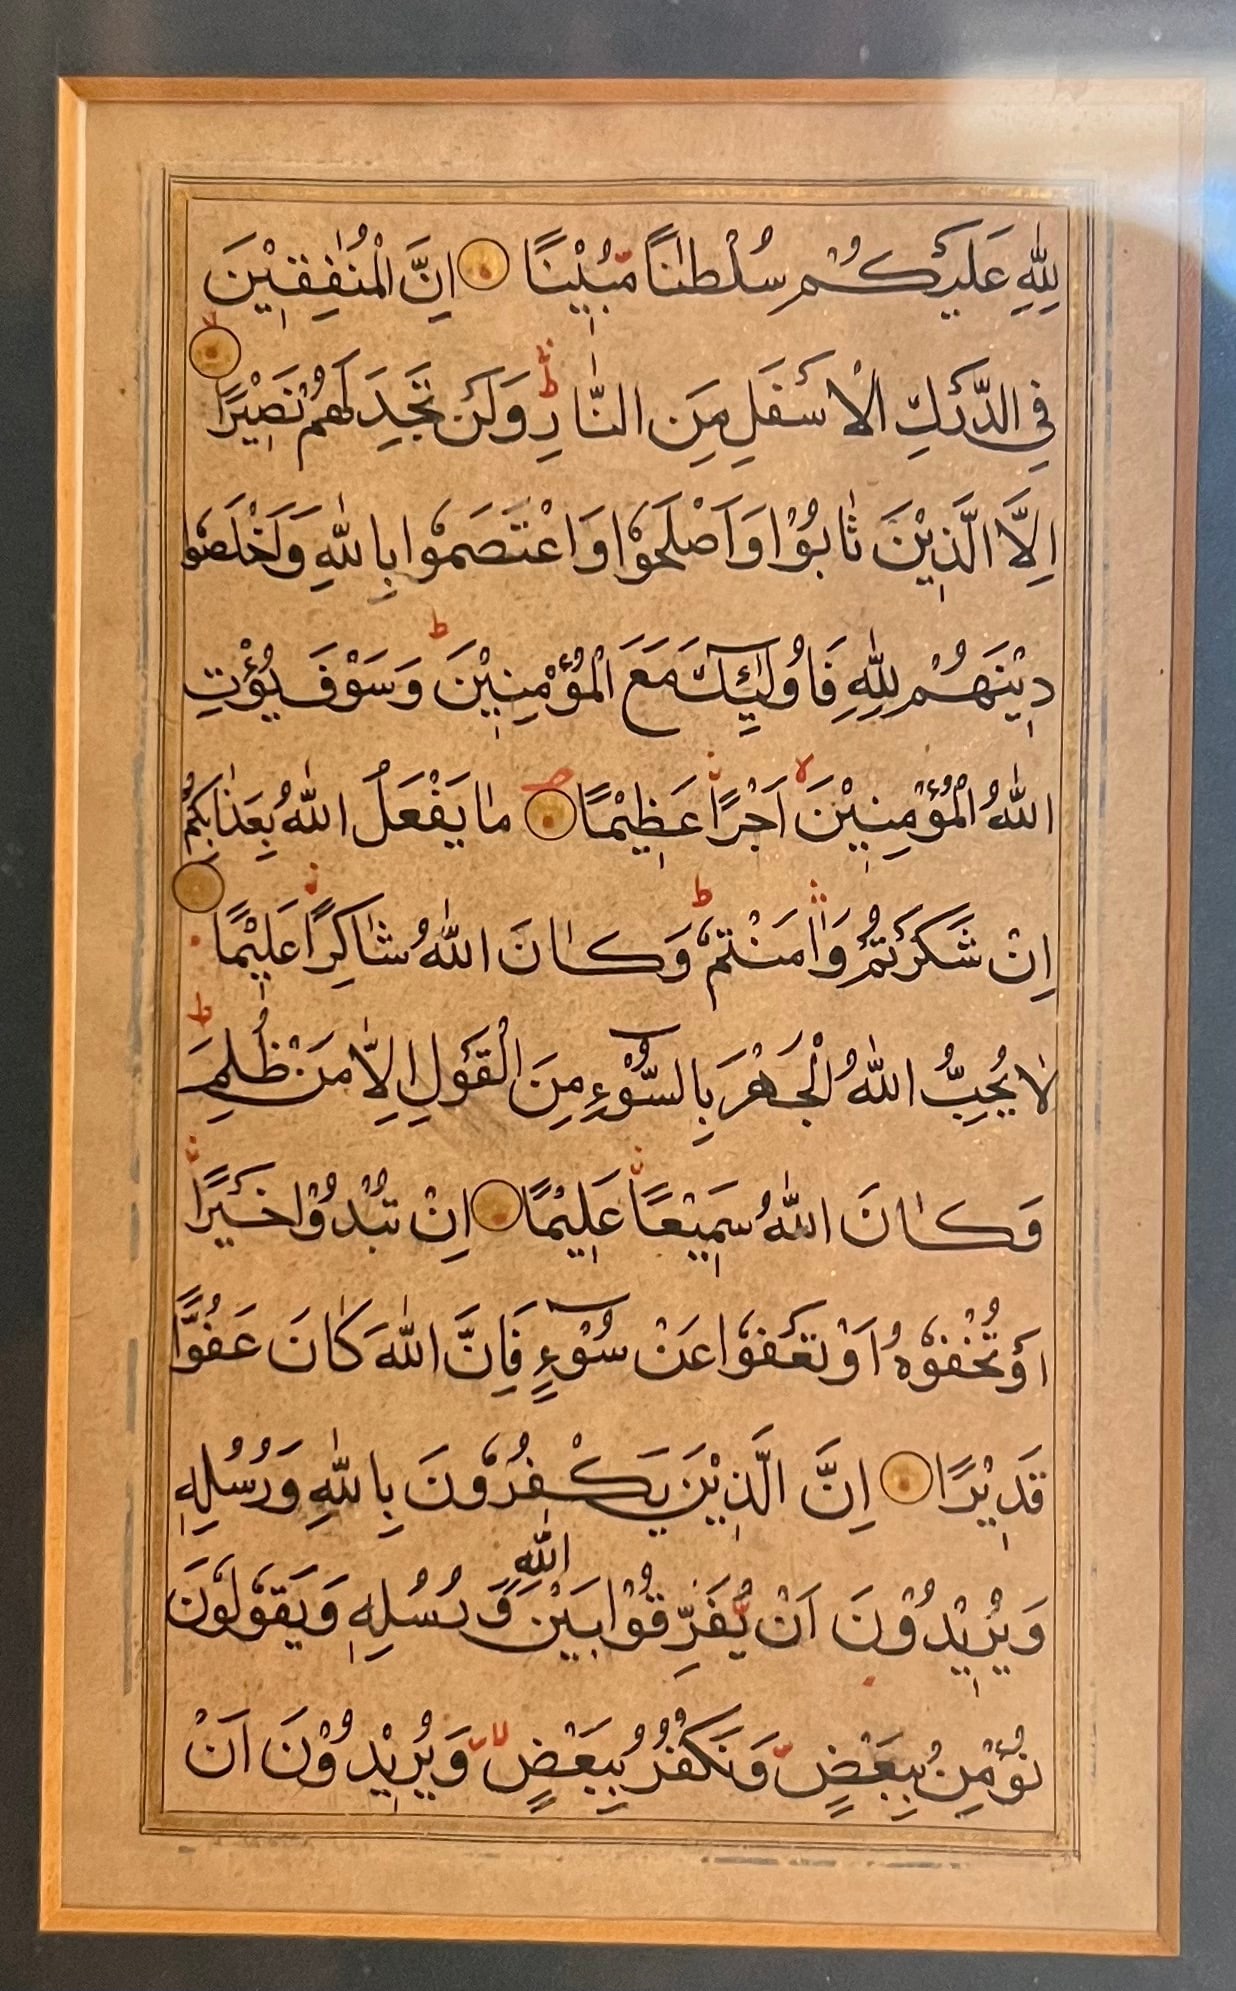 لِلّٰهِ عَلَيْكُمْ سُلْطٰنًا مُّبِيْنًا اِنَّ الْمُنٰفِقِيْنَ
فِي الدَّرْكِ الْاَسْفَلِ مِنَ النَّارِ ط وَلَنْ تَجِدَ لَهُمْ نَصِيْرًا لا
اِلَّا الَّذِيْنَ تَابُوْا وَاَصْلَحُوْا وَاعْتَصَمُوْا بِاللّٰهِ وَاَخْلَصُوْا
دِيْنَهُمْ لِلّٰهِ فَاُولٰٓئِكَ مَعَ الْمُؤْمِنِيْنَ ط وَسَوْفَ يُؤْتِ
اللّٰهُ الْمُؤْمِنِيْنَ اَجْرًا عَظِيْمًا مَا يَفْعَلُ اللّٰهُ بِعَذَابِكُمْ
اِنْ شَكَرْتُمْ وَاٰمَنْتُمْ ط وَكَانَ اللّٰهُ شَاكِرًا عَلِيْمًا
لَا يُحِبُّ اللّٰهُ الْجَهْرَ بِالسُّوْٓءِ مِنَ الْقَوْلِ اِلَّا مَنْ ظُلِمَ ط
وَكَانَ اللّٰهُ سَمِيْعًا عَلِيْمًا اِنْ تُبْدُوْا خَيْرًا
اَوْ تُخْفُوْهُ اَوْ تَعْفُوْا عَنْ سُوْٓءٍ فَاِنَّ اللّٰهَ كَانَ عَفُوًّا
قَدِيْرًا اِنَّ الَّذِيْنَ يَكْفُرُوْنَ بِاللّٰهِ وَرُسُلِهٖ
وَيُرِيْدُوْنَ اَنْ يُّفَرِّقُوْا بَيْنَ اللّٰهِ وَرُسُلِهٖ وَيَقُوْلُوْنَ
نُؤْمِنُ بِبَعْضٍ وَّنَكْفُرُ بِبَعْضٍ وَّيُرِيْدُوْنَ اَنْ